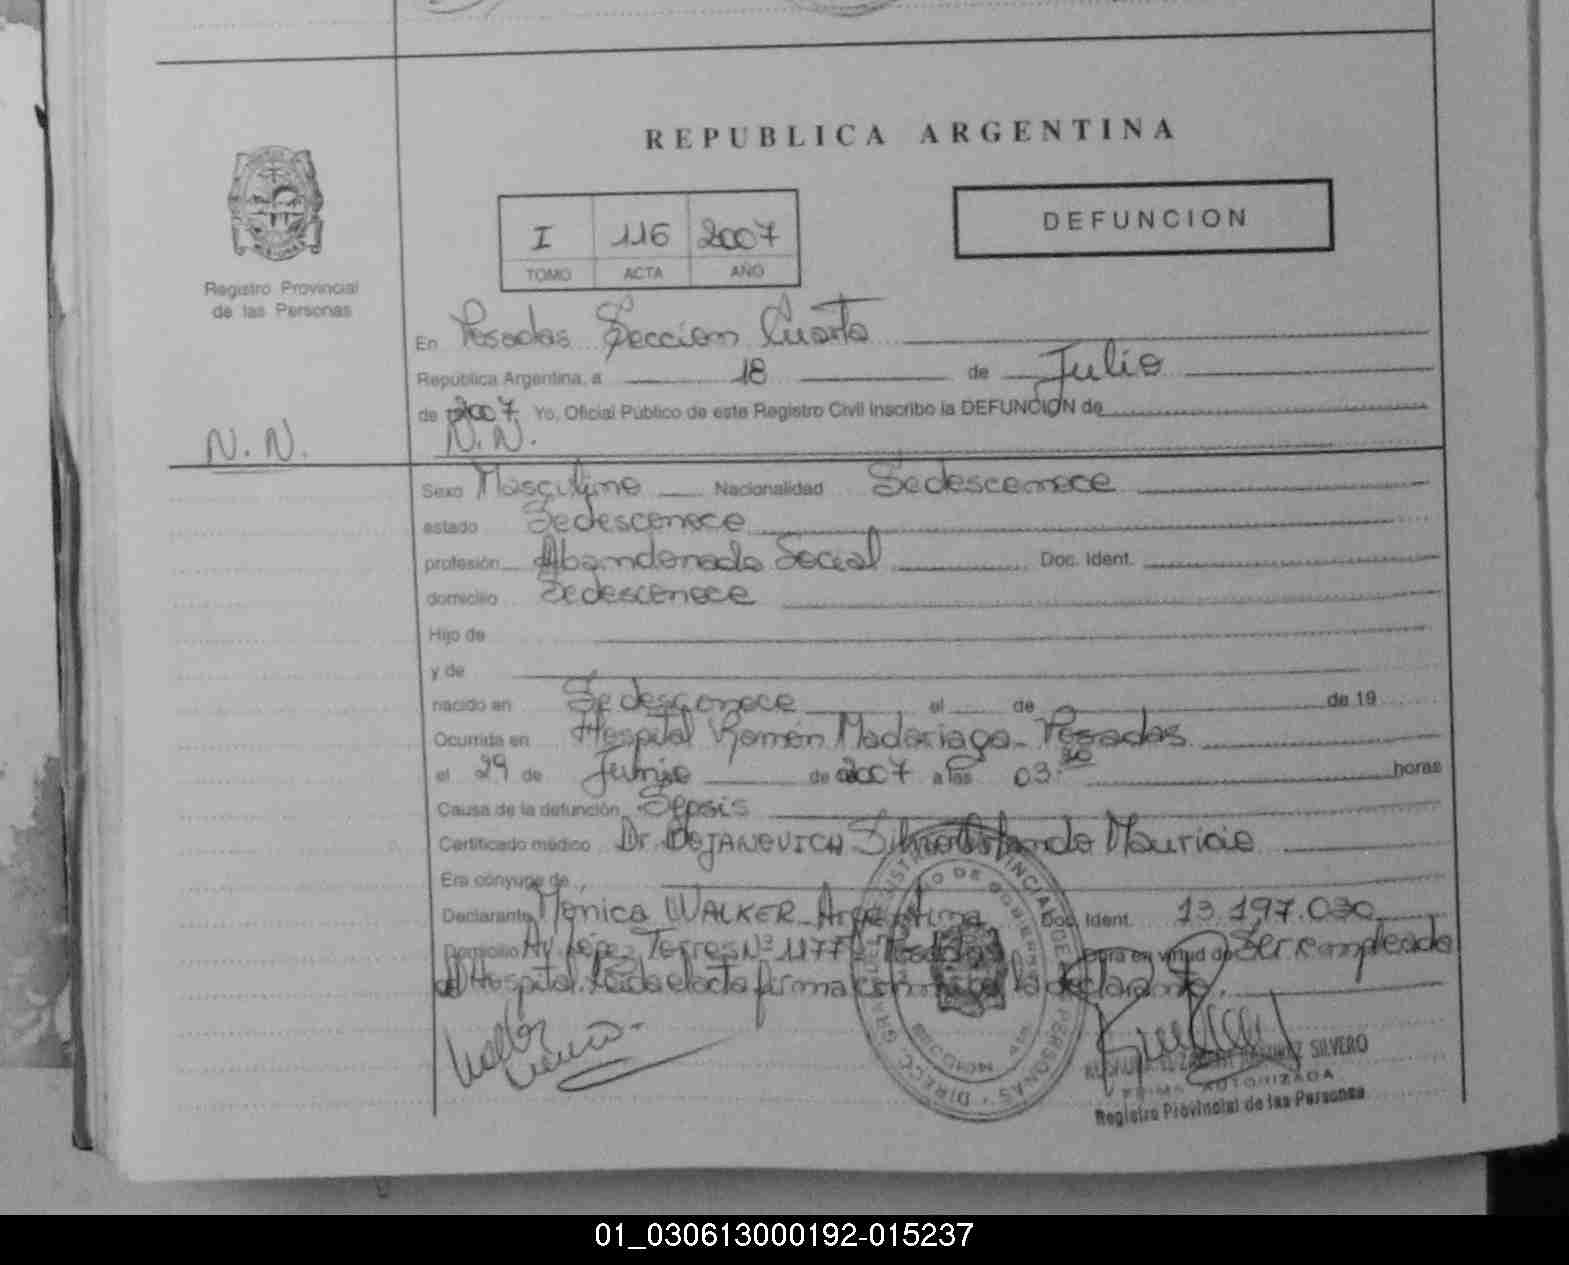 REPUBLICA ARGENTINA
I 116 2007
TOMO ACTA AÑO
DEFUNCION
Registro Provincial
de las Personas
En Posadas Seccion Cuarta
República Argentina, a 18 de Julio
de 2007 Yo, Oficial Público de este Registro Civil inscribo la DEFUNCION de
N.N.
N.N.
Sexo Masculino Nacionalidad Sedesconoce
estado Sedesconoce
profesión Abandonado Social Doc. Ident.
domicilio Sedesconoce
Hijo de
y de
nacido en Se desconoce el de de 19
Ocurrida en Hospital Ramón Madariaga - Posadas
el 29 de Junio de 2007 a las 03.30 horas
Causa de la defunción Sepsis
Certificado médico Dr. BOJANOVICH Mauricio
Era cónyuge de
Declarante Mónica WALKER - Argentina Doc. Ident. 13.197.030
Domicilio Av. López Torres Nº 1177 - Posadas obra en virtud de Ser empleada
del Hospital. Leida el acta firma conmigo la declarante.
SILVERO
FIRMA AUTORIZADA
Registro Provincial de las Personas
01_030613000192-015237